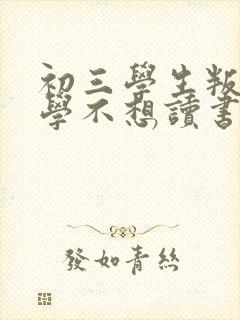 初三學生叛
學不想讀書
發如青絲